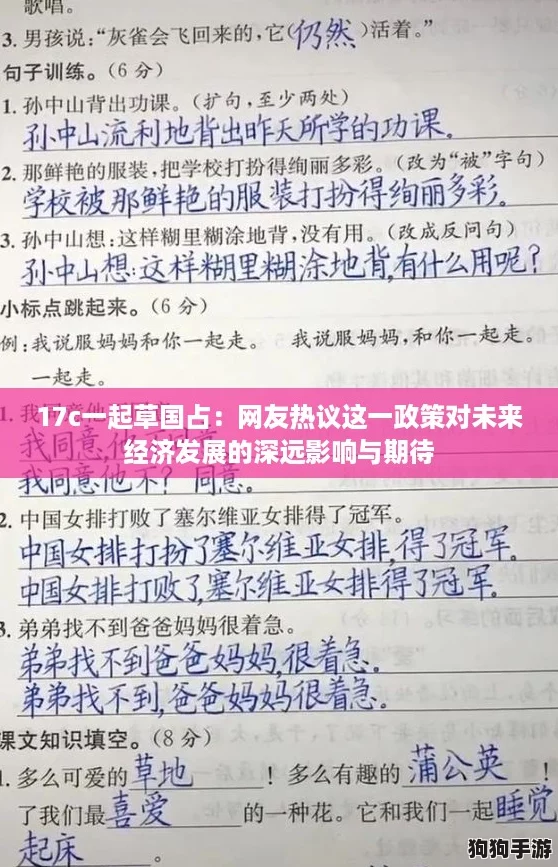 歌唱。
3. 男孩说:“灰雀会飞回来的,它(仍然)活着。”
句子训练。(6 分)
1. 孙中山背出功课。(扩句,至少两处)
孙中山流利地背出昨天所学的功课。
2. 那鲜艳的服装,把学校打扮得绚丽多彩。(改为“被”字句)
学校被那鲜艳的服装打扮得绚丽多彩。
3. 孙中山想:这样糊里糊涂地背,没有用。(改成反问句)
孙中山想:这样糊里糊涂地背,有什么用呢?
小标点跳起来。(6 分)
例:我说服妈妈和你一起走。 我说服妈妈,和你一起走。
一起走。
17c一起草国占:网友热议这一政策对未来
经济发展的深远影响与期待
我同意他不?同意。
2. 中国女排打败了塞尔维亚女排得了冠军。
中国女排打扮了塞尔维亚女排,得了冠军。
中国女排打败了,塞尔维亚女排得了冠军。
3. 弟弟找不到爸爸妈妈很着急。
弟弟找不到爸爸妈妈,很着急。
弟弟找不到,爸爸妈妈很着急。
课文知识填空。(8 分)
1. 多么可爱的草地!多么有趣的蒲公英!
了我们最喜爱的一种花。它和我们一起睡觉
起床
狗狗手游